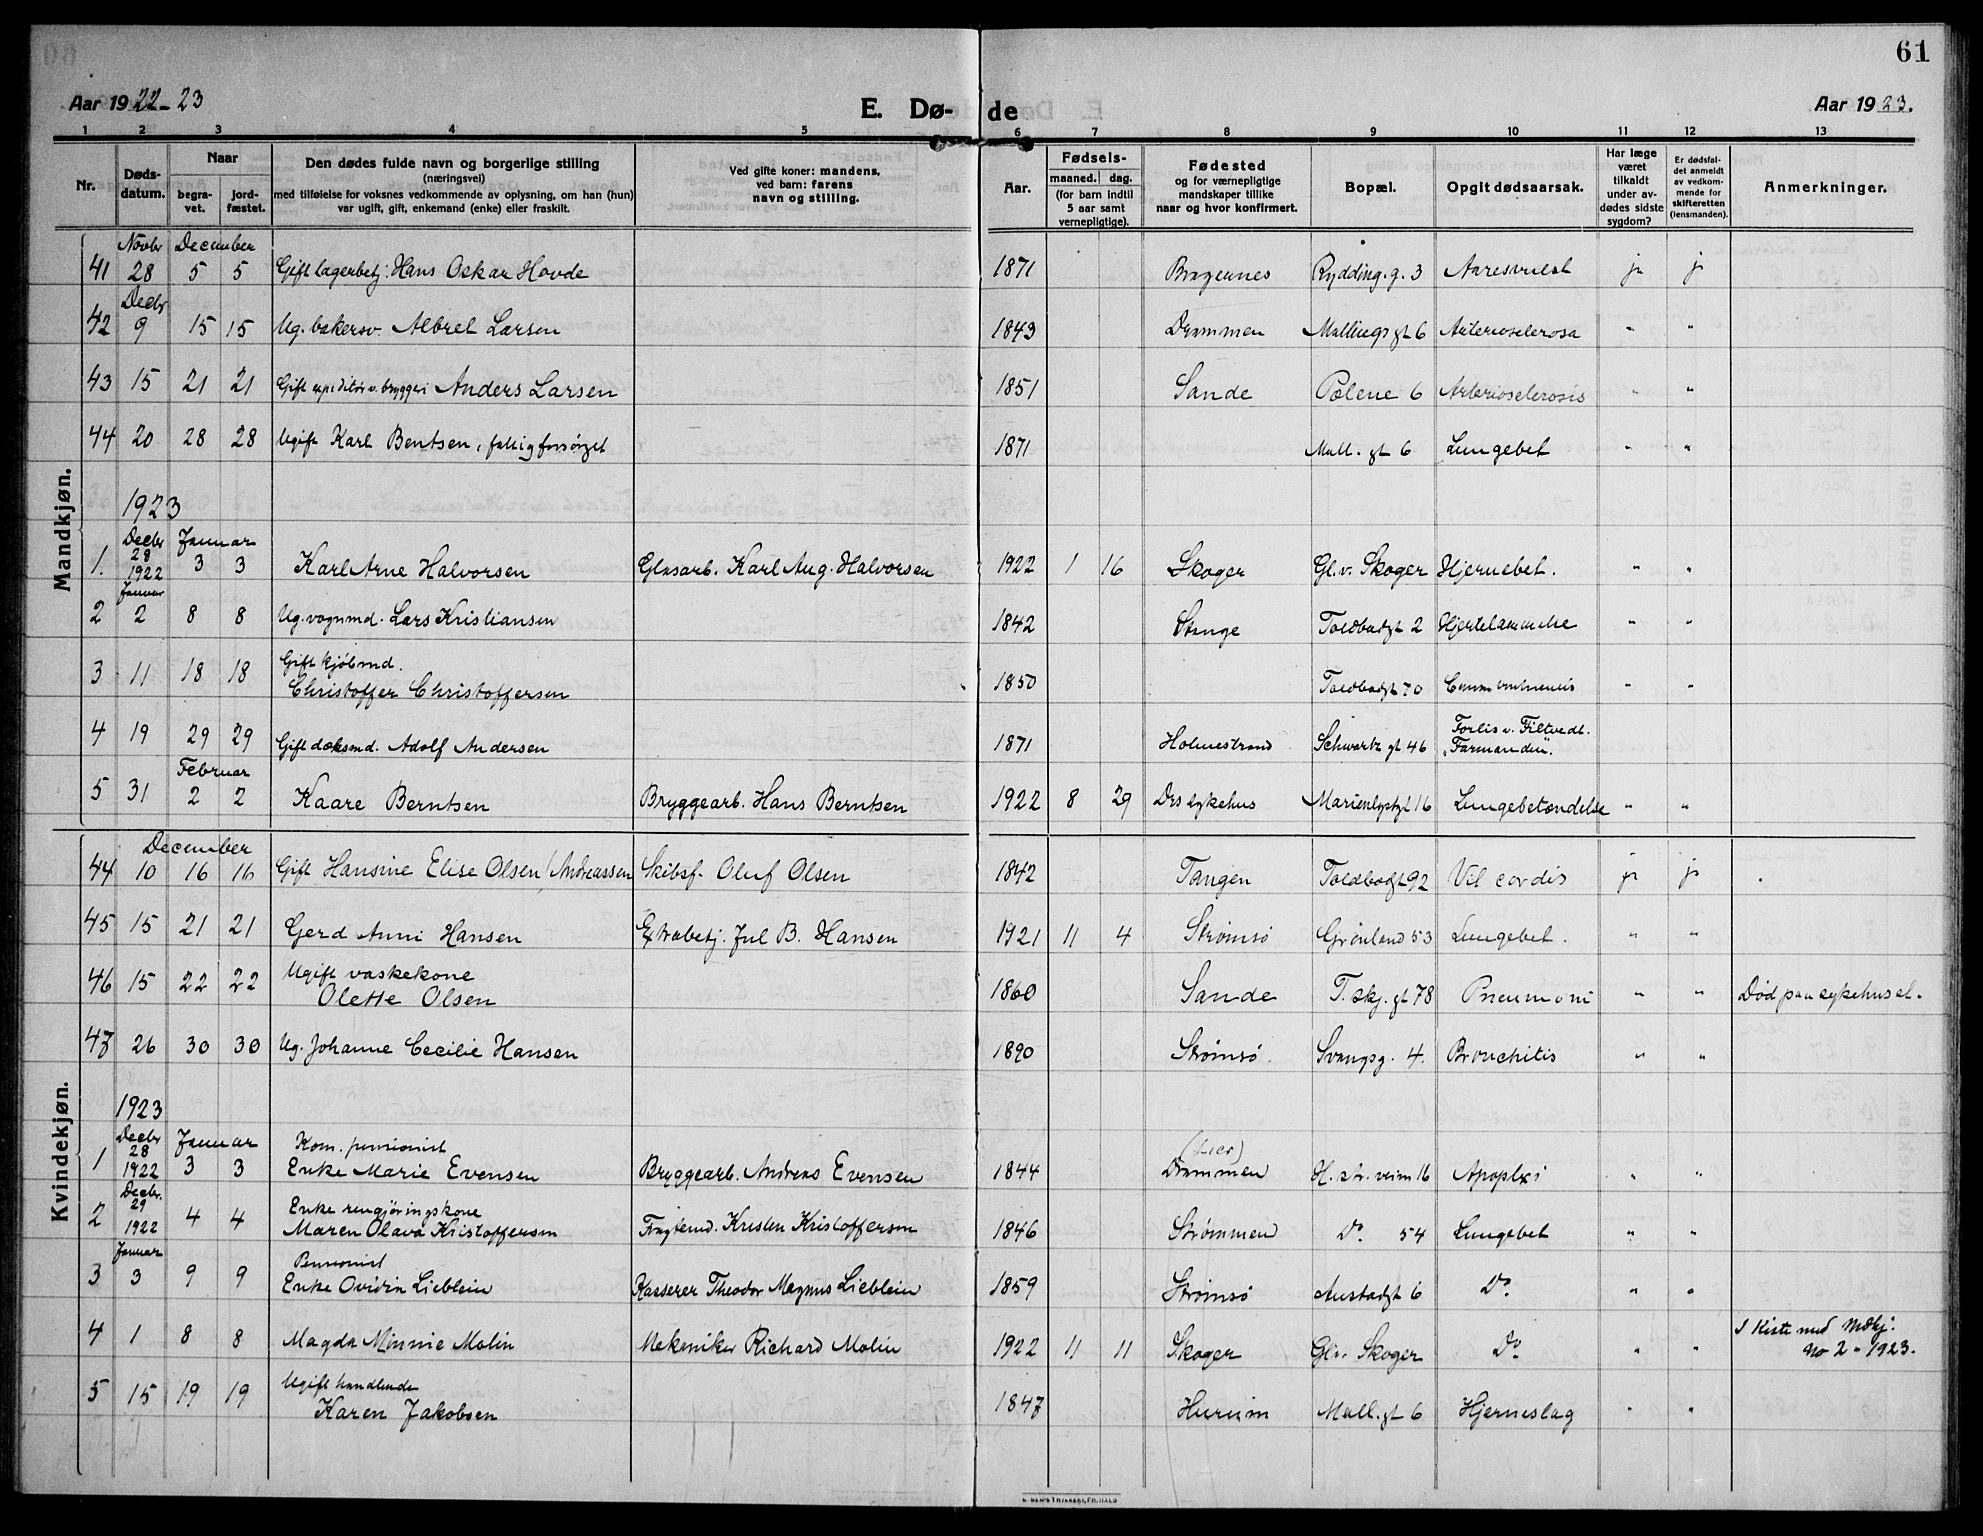 61
Aar 1922-23 E. Dø- de Aar 1923.
1 2 3 4 5 6 7 8 9 10 11 12 13
Nr. Døds-datum. Naar begra-vet. jord-fæstet. Den dødes fulde navn og borgerlige stilling (næringsvei) med tilføielse for voksnes vedkommende av oplysning, om han (hun) var ugift, gift, enkemand (enke) eller fraskilt. Ved gifte koner: mandens, ved barn: farens navn og stilling. Aar. Fødsels- maaned. dag. (for barn indtil 5 aar samt vernepligtige). Fødested og for værnepligtige mandskaper tillike naar og hvor konfirmert. Bopæl. Opgit dødsaarsak. Har læge været tilkaldt under av-dødes sidste sygdom? Er dødsfal-det anmeldt av vedkom-mende for skifteretten (lensmanden). Anmerkninger.
Mandkjøn.
Novbr December
41 28 5 5 Gift lagerbetj. Hans Oskar Hovde 1871 Bragernes Rydding.g. 3 Aaresvulst ja ja
Decbr
42 9 15 15 Ug. bakersv. Albret Larsen 1843 Drammen Mallings gt 6 Arteriosclerosa " "
43 15 21 21 Gift expeditør v. bryggeri Anders Larsen 1851 Sande Polene 6 Arteriosclerosis " "
44 20 28 28 Ugift Karl Bentsen, fattigforsørget 1871 Mall. gt 6 Lungebet " "
1923
Decbr Januar
1. 28 1922 3 3 Karl Arne Halvorsen Glasarb. Karl Aug. Halvorsen 1922 1 16 Skoger Gl.v. Skoger Hjernebet. " "
Januar
2 2 8 8 Ug. vognmd. Lars Kristiansen 1842 Stange Toldbodgt 2 Hjertelammelse " "
3 11 18 18 Gift kjøbmd.
Christoffer Christoffersen 1850 Toldbodgt 70 " "
4 19 29 29 Gift dæksmd. Adolf Andersen 1871 Holmestrand Schwartz gt 46 Forlis v. Filtvedt. "Farmanden".
Februar
5 31 2 2 Kaare Berntsen Bryggearb. Hans Berntsen 1922 8 29 Drs sykehus Marienlystgt 16 Lungebetændelse " "
Kvindekjøn.
December
44 10 16 16 Gift Hansine Elise Olsen / Andreassen Skibsf. Oluf Olsen 1842 Tangen Toldbodgt 92 Vit cordis ja ja
45 15 21 21 Gerd Anni Hansen Extrabetj. Jul B. Hansen 1921 11 4 Strømsø Grønland 53 Lungebet. " "
46 15 22 22 Ugift vaskekone
Olette Olsen 1860 Sande T. skj. gt 78 Pneumoni " " Død paa sykehuset.
47 26 30 30 Ug. Johanne Cecilie Hansen 1890 Strømsø. Svangsg. 4. Bronchitis " "
1923
Decbr Januar Kom. pensionist (Lier)
1 28 1922 3 3 Enke Marie Evensen Bryggearb. Andreas Evensen 1844 Drammen H. str. veien 16 Apoplexi " "
Decbr. Enke rengjøringskone
2 29 1922 4 4 Maren Olava Kristoffersen Fragtemd. Kristen Kristoffersen 1846 Strømmen Do 54 Lungebet " "
Januar Pensionist
3 3 9 9 Enke Ovidia Lieblein Kasserer Theodor Magnus Lieblein 1859 Strømsø Austadgt 6 Do " "
4 1 8 8 Magda Minnie Molin Mekaniker Richard Molin 1922 11 11 Skoger Gl.v. Skoger Do " " I Kiste med Mdkj. No 2 - 1923.
5 15 19 19 Ugift handlende
Karen Jakobsen 1847 Hurum Mall. gt 6 Hjerneslag " "